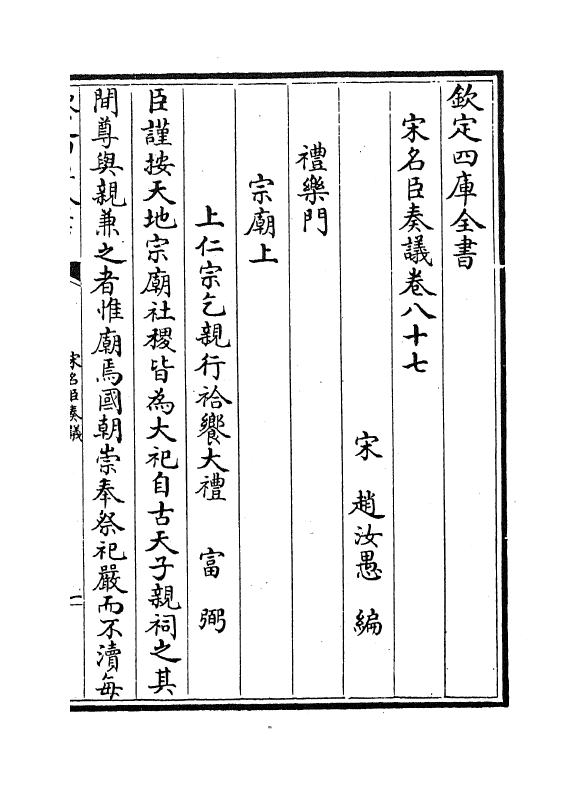 欽定四庫全書
宋名臣奏議卷八十七
宋 趙汝愚 編
禮樂門
宗廟上
上仁宗乞親行祫饗大禮 富弼
臣謹按天地宗廟社稷皆為大祀自古天子親祠之其
間尊與親兼之者惟廟焉國朝崇奉祭祀嚴而不瀆每
宋名臣奏議
一